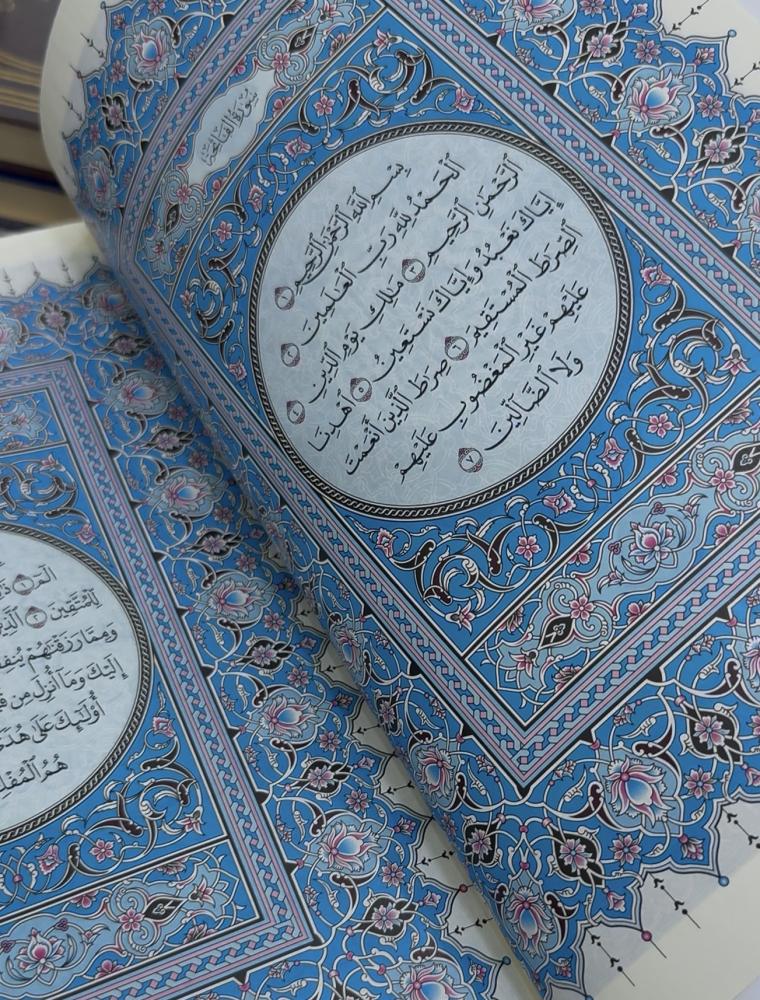 سُورَةُ الفَاتِحَةِ
بِسْمِ ٱللَّهِ ٱلرَّحْمَٰنِ ٱلرَّحِيمِ ١
ٱلْحَمْدُ لِلَّهِ رَبِّ ٱلْعَٰلَمِينَ ٢
ٱلرَّحْمَٰنِ ٱلرَّحِيمِ ٣ مَٰلِكِ يَوْمِ ٱلدِّينِ ٤
إِيَّاكَ نَعْبُدُ وَإِيَّاكَ نَسْتَعِينُ ٥ ٱهْدِنَا
ٱلصِّرَٰطَ ٱلْمُسْتَقِيمَ ٦ صِرَٰطَ ٱلَّذِينَ أَنْعَمْتَ
عَلَيْهِمْ غَيْرِ ٱلْمَغْضُوبِ عَلَيْهِمْ
وَلَا ٱلضَّآلِّينَ ٧
الٓمٓ ١
لِّلْمُتَّقِينَ ٢
وَمِمَّا رَزَقْنَٰهُمْ
إِلَيْكَ وَمَآ أُنزِلَ مِن
أُو۟لَٰٓئِكَ عَلَىٰ
هُمُ